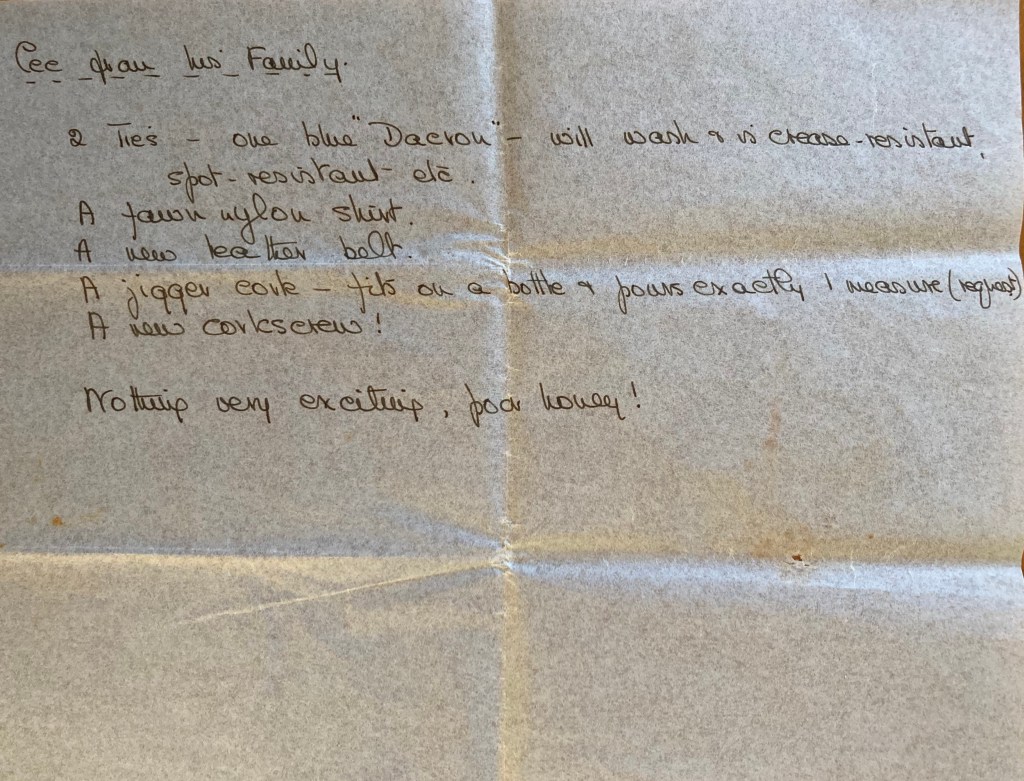 Cee from his Family.
2 Ties - one blue "Dacron" - will wash & is crease-resistant,
spot-resistant etc.
A fawn nylon shirt.
A new leather belt.
A jigger cork - fits on a bottle & pours exactly 1 measure (request)
A new corkscrew!
Nothing very exciting, poor honey!